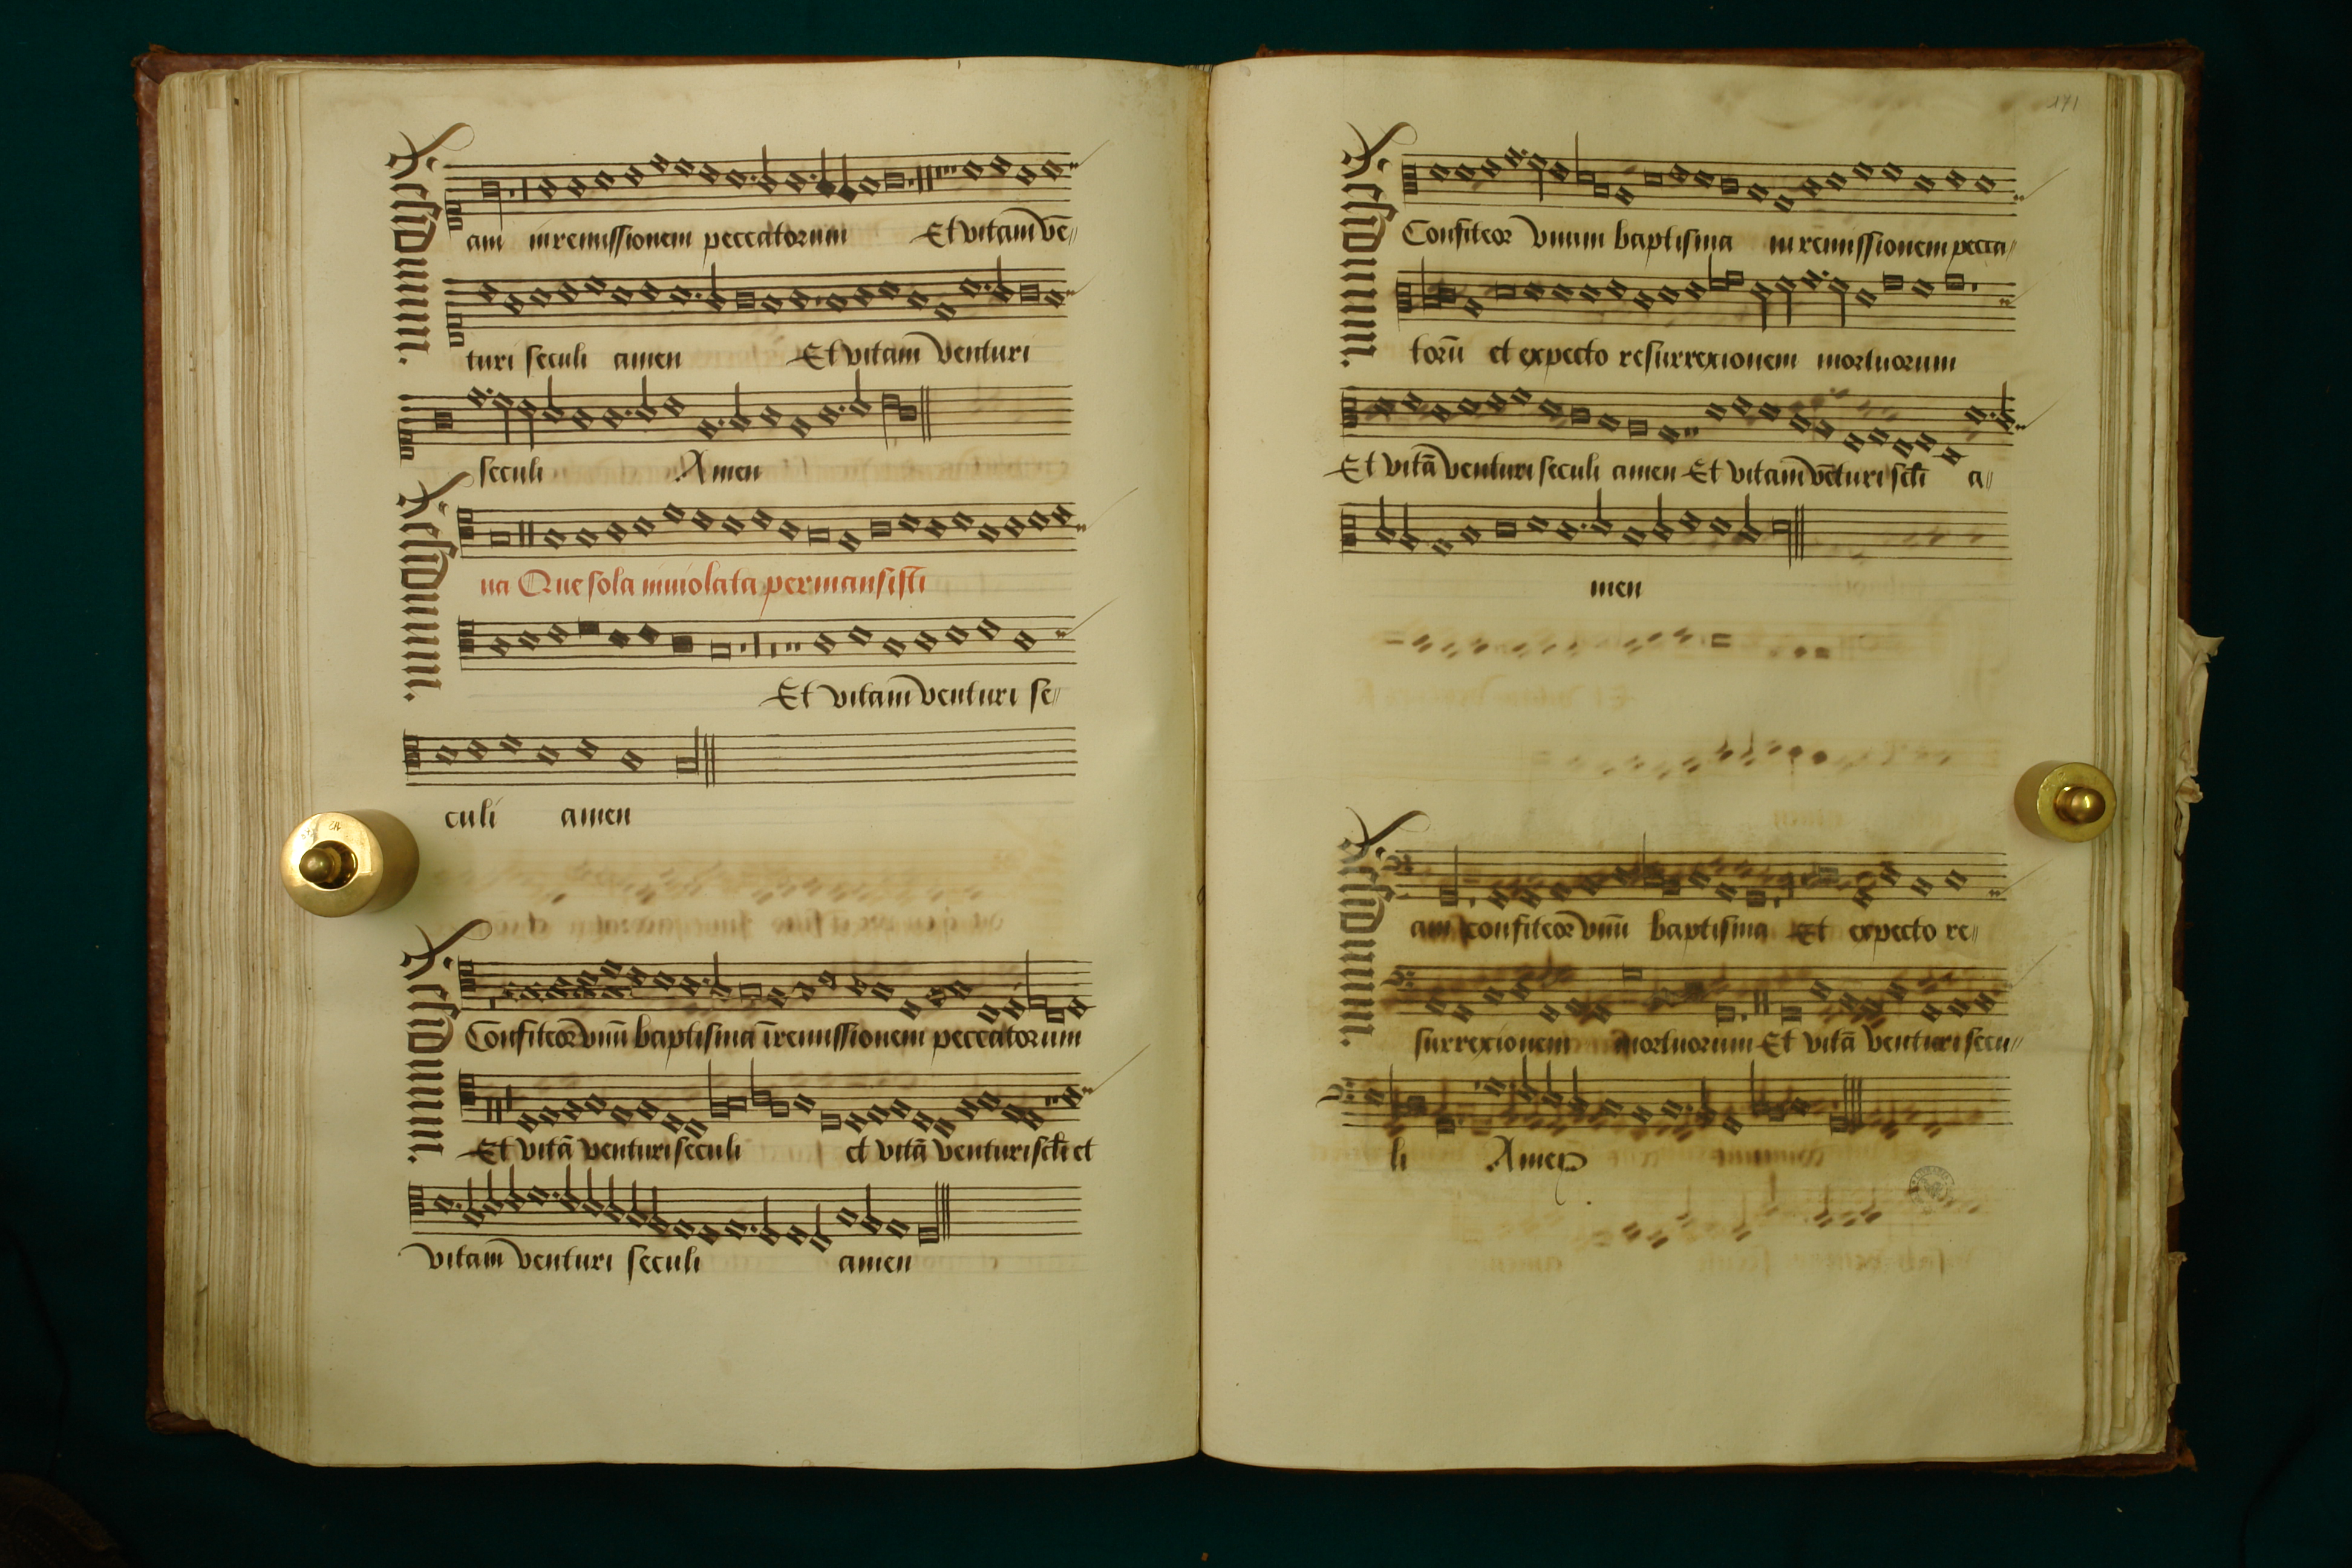 Residuum.
am in remissionem peccatorum Et vitam̄ vē〃
turi seculi amen Et vitam venturi
seculi Amen
Residuum.
na Que sola inuiolata permansisti
Et vitam̄ venturi se〃
culi amen
Residuum.
Confiteor vnū baptisma ī remissionem peccatorum
Et vitā venturi seculi et vitā venturi scłi et
vitam venturi seculi amen
171
Residuum.
Confiteor vnum baptisma in remissionem pecca〃
torū et expecto resurrexionem mortuorum
Et vitā venturi seculi amen Et vitam̄ vēturi scłi a〃
men
Residuum.
am confiteor vnū baptisma Et expecto re〃
surrexionem mortuorum Et vitā venturi secu〃
li Amen